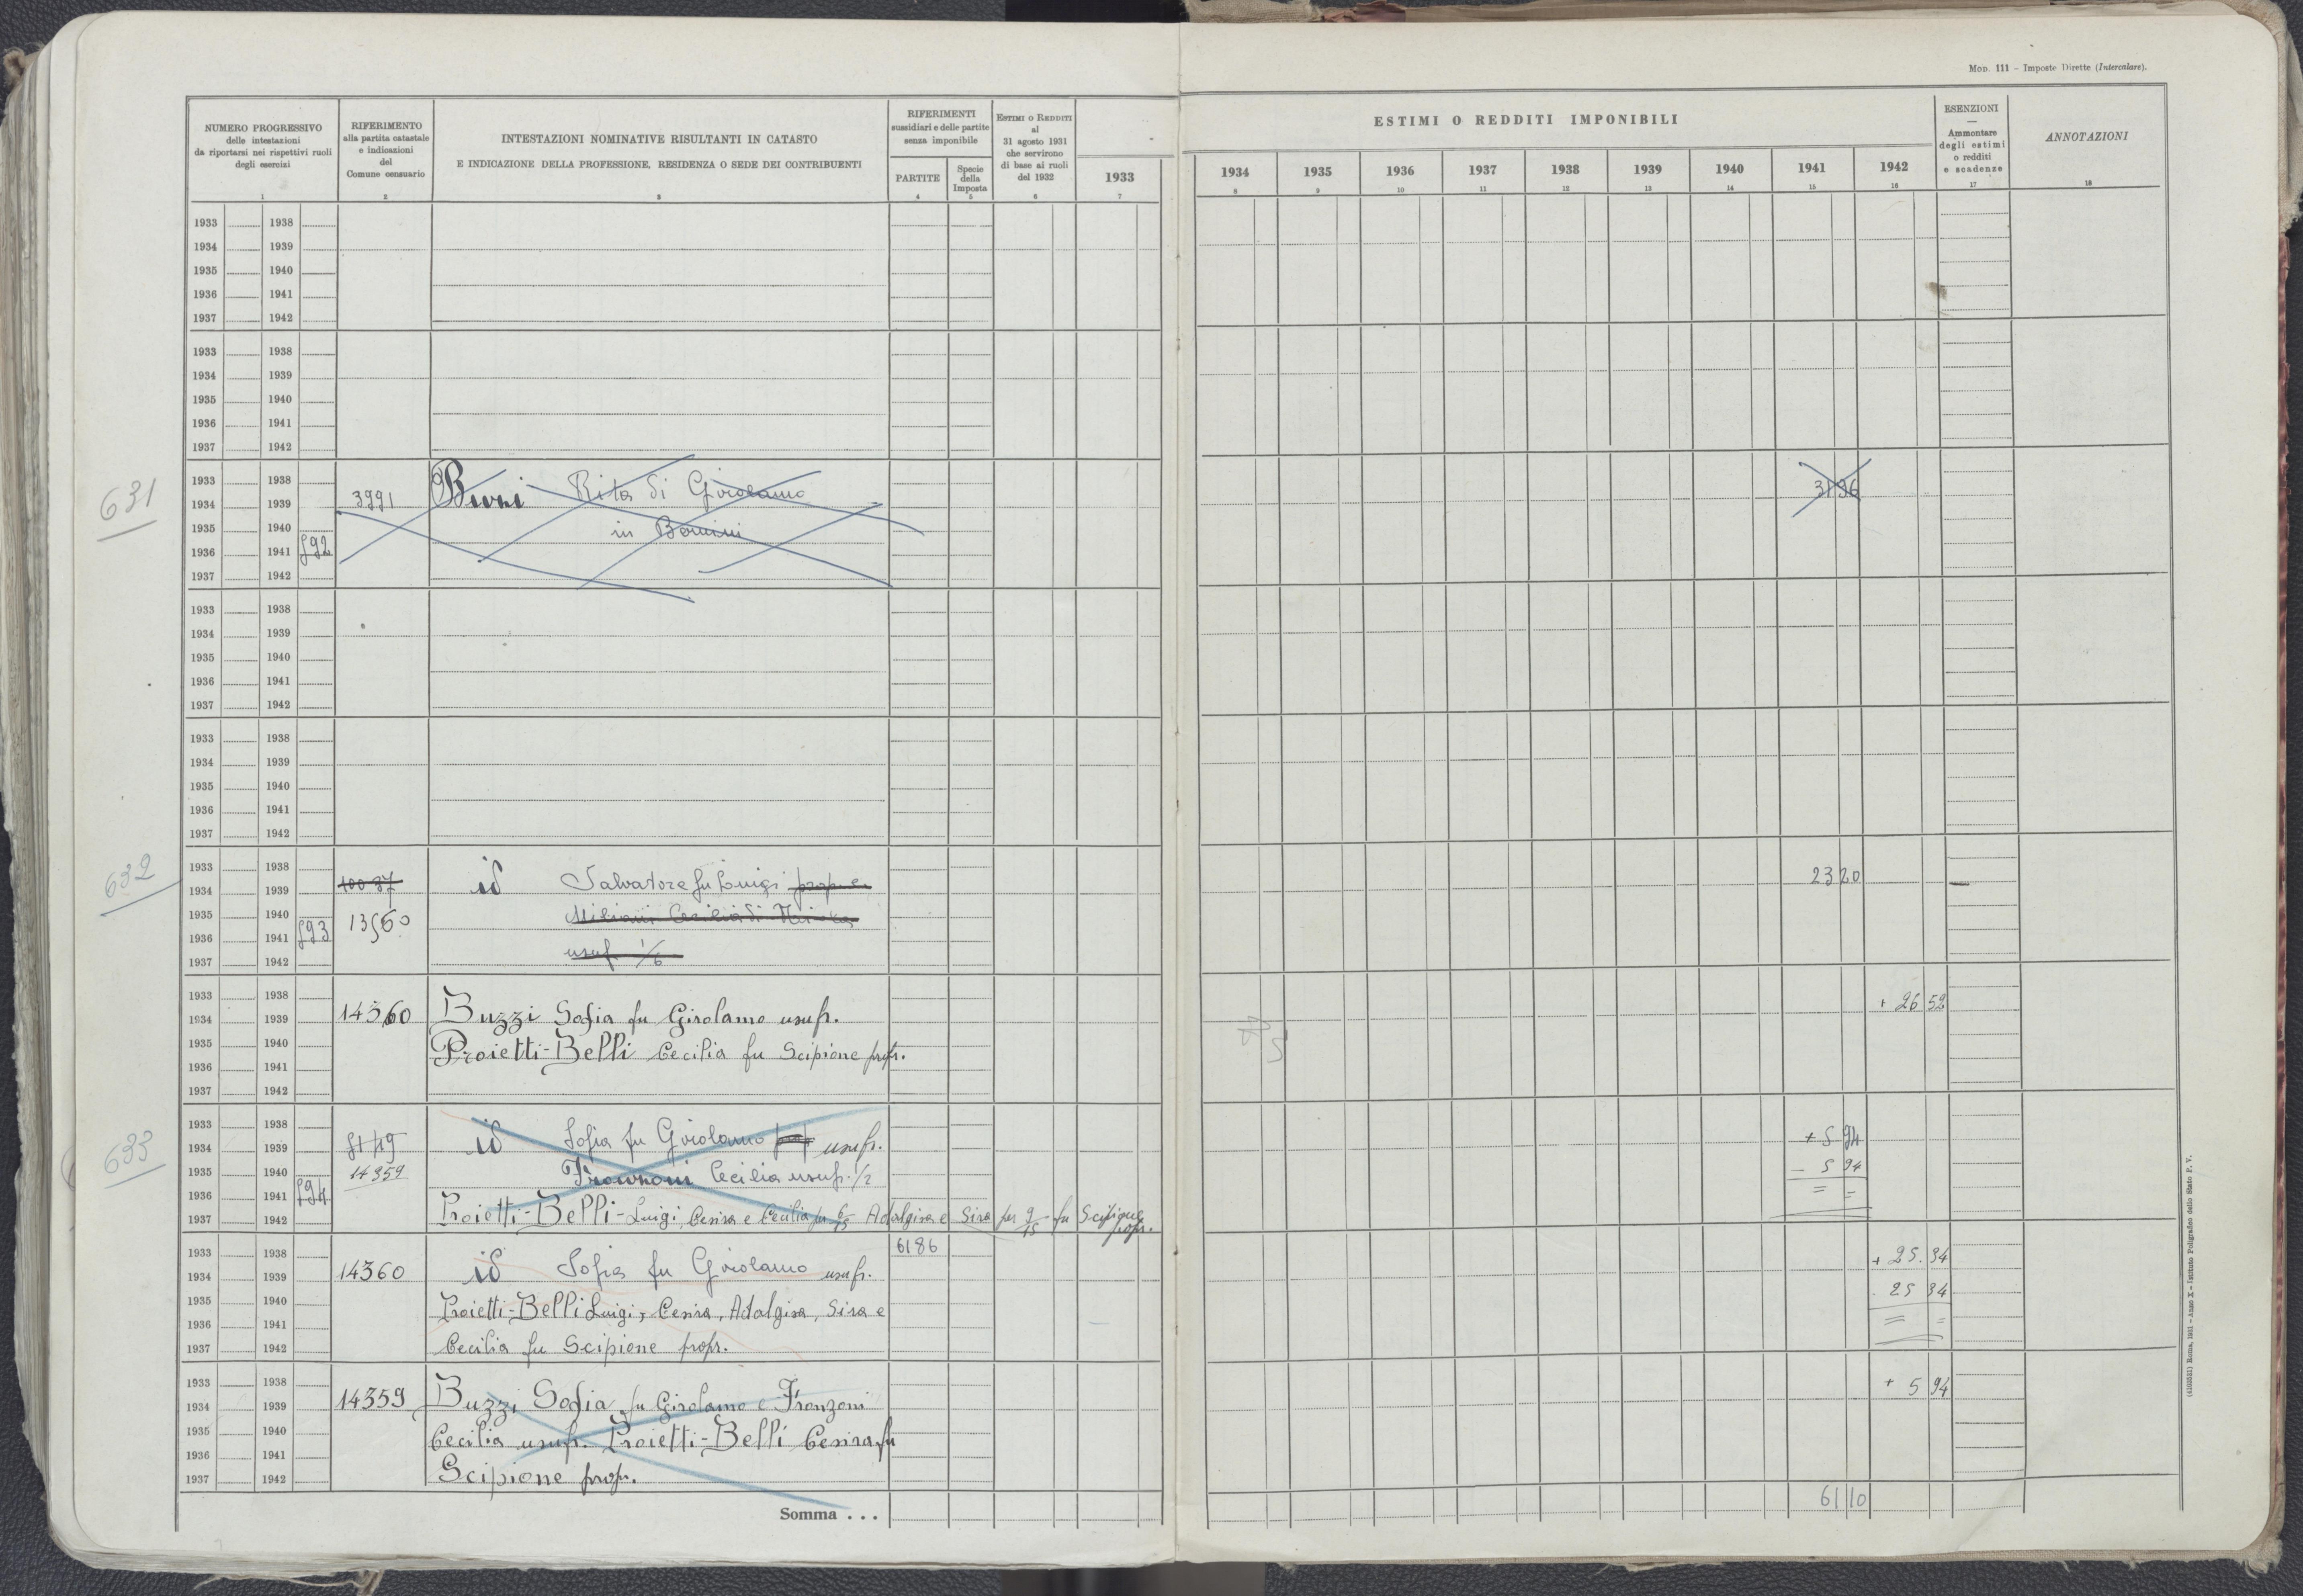 Mod. 111 – Imposte Dirette (Intercalare).
NUMERO PROGRESSIVO
delle intestazioni
da riportarsi nei rispettivi ruoli
degli esercizi
1
RIFERIMENTO
alla partita catastale
e indicazioni
del
Comune censuario
2
INTESTAZIONI NOMINATIVE RISULTANTI IN CATASTO
E INDICAZIONE DELLA PROFESSIONE, RESIDENZA O SEDE DEI CONTRIBUENTI
3
RIFERIMENTI
sussidiari e delle partite
senza imponibile
PARTITE
4
Specie
della
Imposta
5
Estimi o Redditi
al
31 agosto 1931
che servirono
di base ai ruoli
del 1932
6
ESTIMI O REDDITI IMPONIBILI
1933 1934 1935 1936 1937 1938 1939 1940 1941 1942
7 8 9 10 11 12 13 14 15 16
ESENZIONI
—
Ammontare
degli estimi
o redditi
e scadenze
17
ANNOTAZIONI
18
1933 1938
1934 1939
1935 1940
1936 1941
1937 1942
1933 1938
1934 1939
1935 1940
1936 1941
1937 1942
631
1933 1938
1934 1939 3991 Buzzi Rita di Girolamo 31 36
1935 1940 in
1936 1941 592
1937 1942
1933 1938
1934 1939
1935 1940
1936 1941
1937 1942
1933 1938
1934 1939
1935 1940
1936 1941
1937 1942
632
1933 1938
1934 1939 10037 id Salvatore fu Luigi prop e 23 20
1935 1940 13560 Cecilia di
1936 1941 593
1937 1942 usuf 1/6
1933 1938
1934 1939 14360 Buzzi Sofia fu Girolamo usufr. + 26 52
1935 1940 Proietti-Belli Cecilia fu Scipione propr.
1936 1941
1937 1942
633
1933 1938
1934 1939 id Sofia fu Girolamo prop usufr. + 5 94
1935 1940 14359 Cecilia usufr. 1/2 – 5 94
1936 1941 594 = =
1937 1942 Proietti-Belli-Luigi, Cesira e Cecilia per 6/15 Adalgisa e Sira per 9/15 fu Scipione propr.
1933 1938 6186
1934 1939 14360 id Sofia fu Girolamo usufr. + 25. 34
1935 1940 Proietti-Belli Luigi, Cesira, Adalgisa, Sira e 25 34
1936 1941 = =
1937 1942 Cecilia fu Scipione propr.
1933 1938
1934 1939 14359 Buzzi Sofia fu Girolamo e Fronzoni + 5 94
1935 1940 Cecilia usufr. Proietti-Belli Cesira fu
1936 1941
1937 1942 Scipione propr.
Somma . . . 61 10
(4103531) Roma, 1931 – Anno X – Istituto Poligrafico dello Stato P. V.